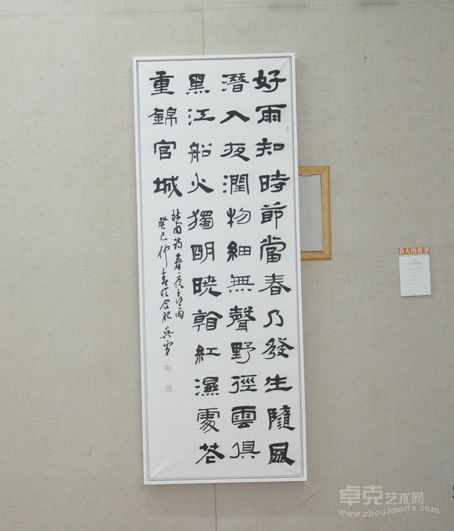 好雨知時節當春乃發生隨風
潛入夜潤物細無聲野徑雲俱
黑江船火獨明曉看紅濕處花
重錦官城
杜甫詩春夜喜雨
癸巳仲春於合肥 吳雪
春天的故事
卓克艺术网
www.zhuokearts.com